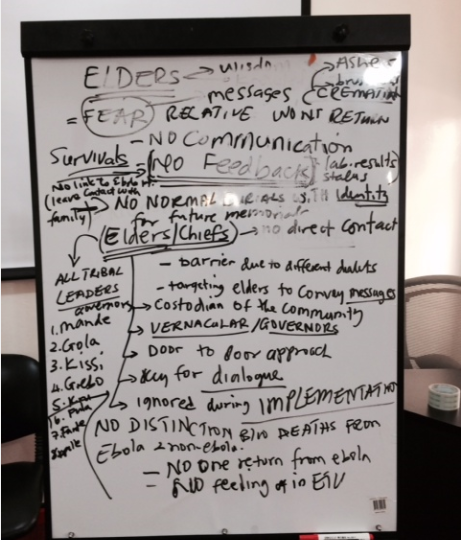 ELDERS → Wisdom
Ashes
burials
messages CREMATION
= FEAR RELATIVE WONT RETURN
- NO Communication
Survivals = NO Feedback (lab. results)
status
No link to Ebola
(leave Contact with
family)
NO NORMAL BURIALS WITH Identity
for future memorials
Elders/Chiefs → no direct contact
ALL TRIBAL
LEADERS
governors
1. mande
2. Gola
3. Kissi
4. Grebo
5. Kru
6.
7.
- barrier due to different dialects
- targeting elders to Convey messages
→ Custodian of the Community
→ VERNACULAR/GOVERNORS
→ Door to Door approach
→ Key for dialogue
→ Ignored during IMPLEMENTATION
NO DISTINCTION B/W DEATHS FROM
Ebola & non-ebola.
- NO One return from ebola
= NO feeling of in ETU